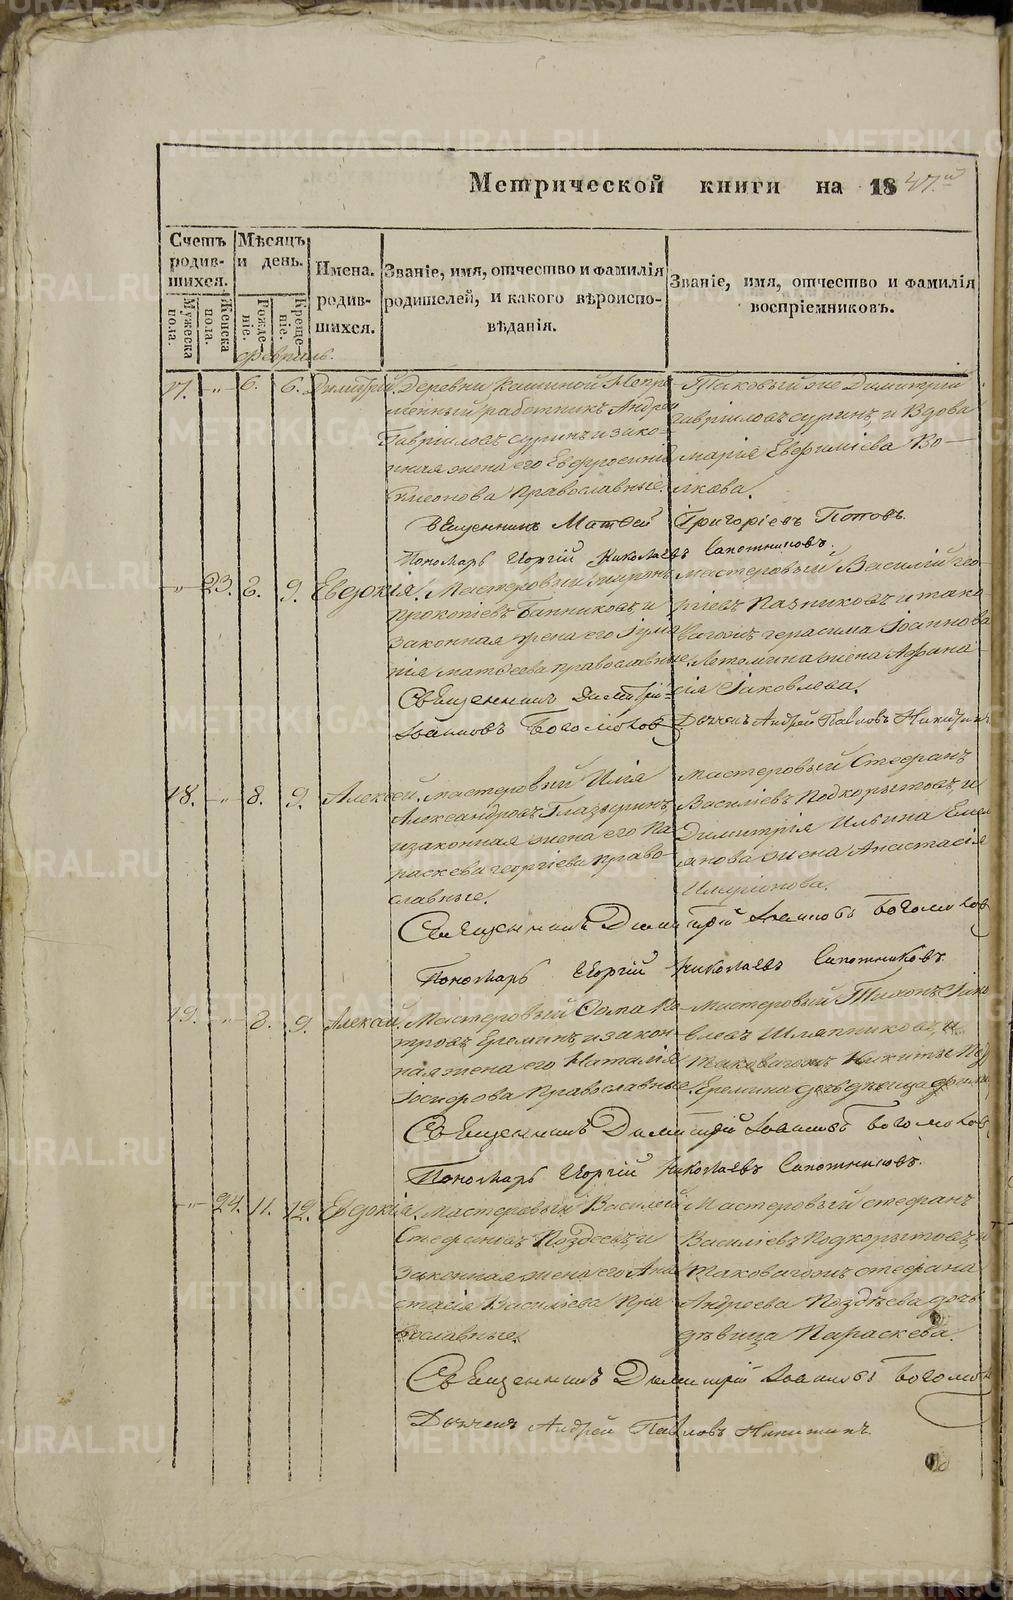 Метрической книги на 1847.й
Счетъ родив-шихся.
Мужеска пола.
Женска пола.
Мѣсяцъ и день.
Рожде-ніе.
Креще-ніе.
Имена. родив-шихся.
Званіе, имя, отчество и фамилія
родителей, и какого вѣроиспо-
вѣданія.
Званіе, имя, отчество и фамилія
воспріемниковъ.
февраль.
17. „ 6. 6. Димитрій.
Деревни Кашиной Непре-
менный работникъ Андрей
Гавріиловъ Суринъ и зако-
нная жена его Евфросинія
православные.
Таковый же Димитрій
Гавріиловъ Суринъ, и Вдова
Марія Евфиміева Во-
лкова.
Священникъ Матфей Григоріевъ Поповъ.
Пономарь Георгій Николаевъ Сапожниковъ.
„ 23. 8. 9. Евдокія.
Мастеровый
Прокопіевъ Банниковъ, и
законная жена его Игна-
тія Матвеева православные.
Мастеровый Василій Гео-
ргіевъ Пазниковъ и тако-
вагожъ Герасима Іоаннова
Летемина жена Афана-
сія Іаковлева.
Священникъ Димитрій
Іоанновъ Богомоловъ
Дьячекъ Андрей Павловъ Никитинъ
18. „ 8. 9. Алексей.
Мастеровый Илія
Александровъ Глазыринъ,
и законная жена его Па-
раскева Георгіева право-
славные.
Мастеровый Стефанъ
Василіевъ Подкорытовъ, и
Димитрія Ильина Емел-
янова жена Анастасія
Иларіонова.
Священникъ Димитрій Іоанновъ Богомоловъ
Пономарь Георгій Николаевъ Сапожниковъ.
19. „ 8. 9. Алексей.
Мастеровый Фома Па-
тровъ Ереминъ и закон-
ная жена его Наталія
Іосифова Православные.
Мастеровый Тихонъ Іако-
влевъ Шляпниковъ, и
таковагожъ Никиты
Еремина дочь девица
Священникъ Димитрій Іоанновъ Богомоловъ
Пономарь Георгій Николаевъ Сапожниковъ.
„ 24. 11. 12. Евдокія.
Мастеровый Василей
Стефановъ Поздеевъ, и
законная жена его Ана-
стасія Василіева Пра-
вославные.
Мастеровый Стефанъ
Василіевъ Подкорытовъ, и
таковагожъ Стефана
Андреева Поздѣева дочь
дѣвица Параскева.
Священникъ Димитрій Іоанновъ Богомоловъ
Дьячекъ Андрей Павловъ Никитинъ.
METRIKI.GASO-URAL.RU